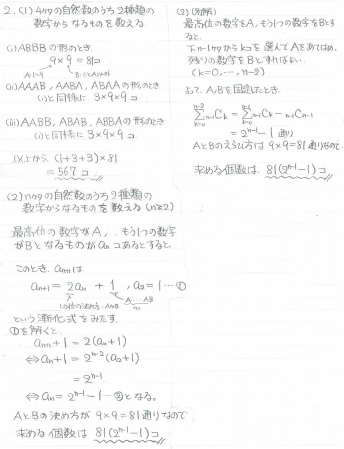 2. (1) 4ケタの自然数のうち2種類の
数字からなるものを数える
(i) ABBBの形のとき
9×9=81コ
A:1〜9 B:0〜9(A以外)
(ii) AAAB, AABA, ABAAの形のとき
(i)と同様に 3×9×9コ
(iii) AABB, ABAB, ABBAの形のとき
(i)と同様に 3×9×9コ
以上から, (1+3+3)×81
=567コ
(2) nケタの自然数のうち2種類の
数字からなるものを数える (n≧2)
最高位の数字がA, もう1つの数字
がBとなるものがanコあるとすると
このとき, an+1は
an+1 = 2an + 1, a2=1…①
1の位の決め方: AorB A…AB
という漸化式をみたす.
①を解くと,
an+1+1=2(an+1)
⇔an+1=2^{n-2}(a2+1)
=2^{n-1}
⇔an=2^{n-1}-1…②となる。
AとBの決め方が9×9=81通りなので
求める個数は 81(2^{n-1}-1)コ
(2) (別解)
最高位の数字をA, もう1つの数字をBとす
ると,
下n-1ケタからkコを選んでAをあてはめ,
残りの数字をBとすればよい.
(k=0,…,n-2)
よって, A,Bを固定したとき,
\sum_{k=0}^{n-2} n-1Ck = \sum_{k=0}^{n-1} n-1Ck - n-1Cn-1
=2^{n-1}-1通り
AとBのえらび方は 9×9=81通りなので
求める個数は, 81(2^{n-1}-1)コ